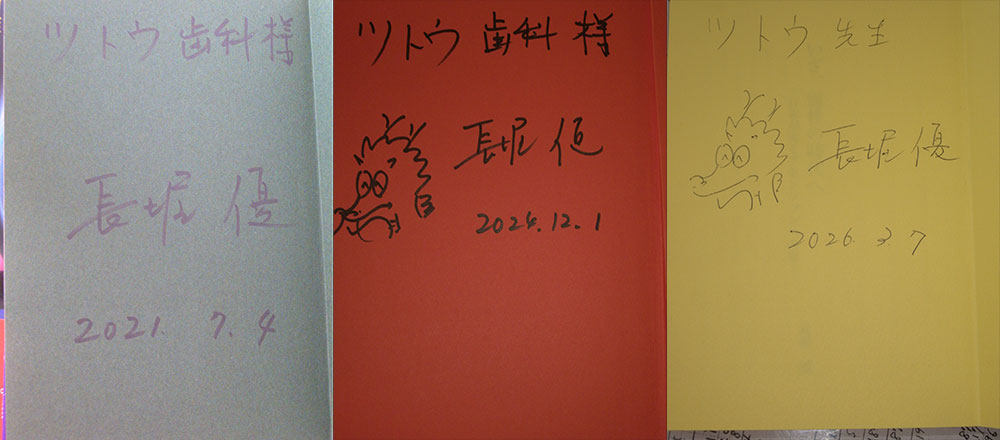 ツトウ歯科様
長堀 優
2021. 7. 4
ツトウ歯科様
長堀 優
2024.12.1
ツトウ 先生
長堀 優
2026. 3. 7